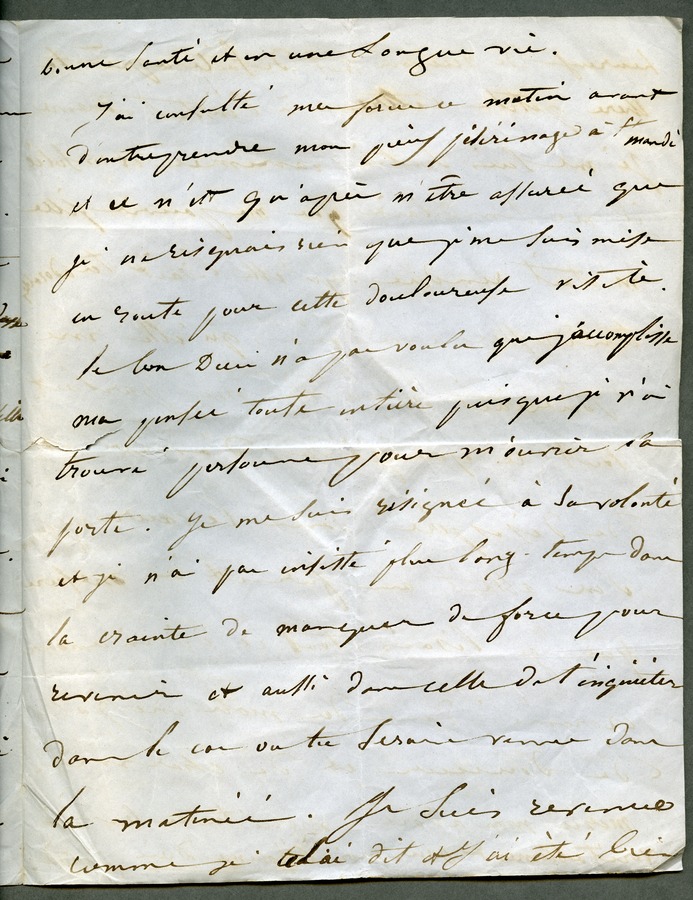 bonne santé et en une longue vie.
J'ai consulté mes forces ce matin avant
d'entreprendre mon pieux pélérinage à St mandé
et ce n'est qu'après m'être assurée que
je ne risquais rien que je me suis mise
en route pour cette douloureuse visite.
le bon Dieu n'a pas voulu que j'accomplisse
ma pensée toute entière puisque je n'ai
trouvé personne pour m'ouvrir la
porte. Je me suis résignée à sa volonté
et je n'ai pas insisté plus long-temps dans
la crainte de manquer de force pour
revenir et aussi dans celle de t'inquiéter
dans le cas ou tu serais venue dans
la matinée. Je suis revenue
comme je te l'ai dit et j'ai été bien